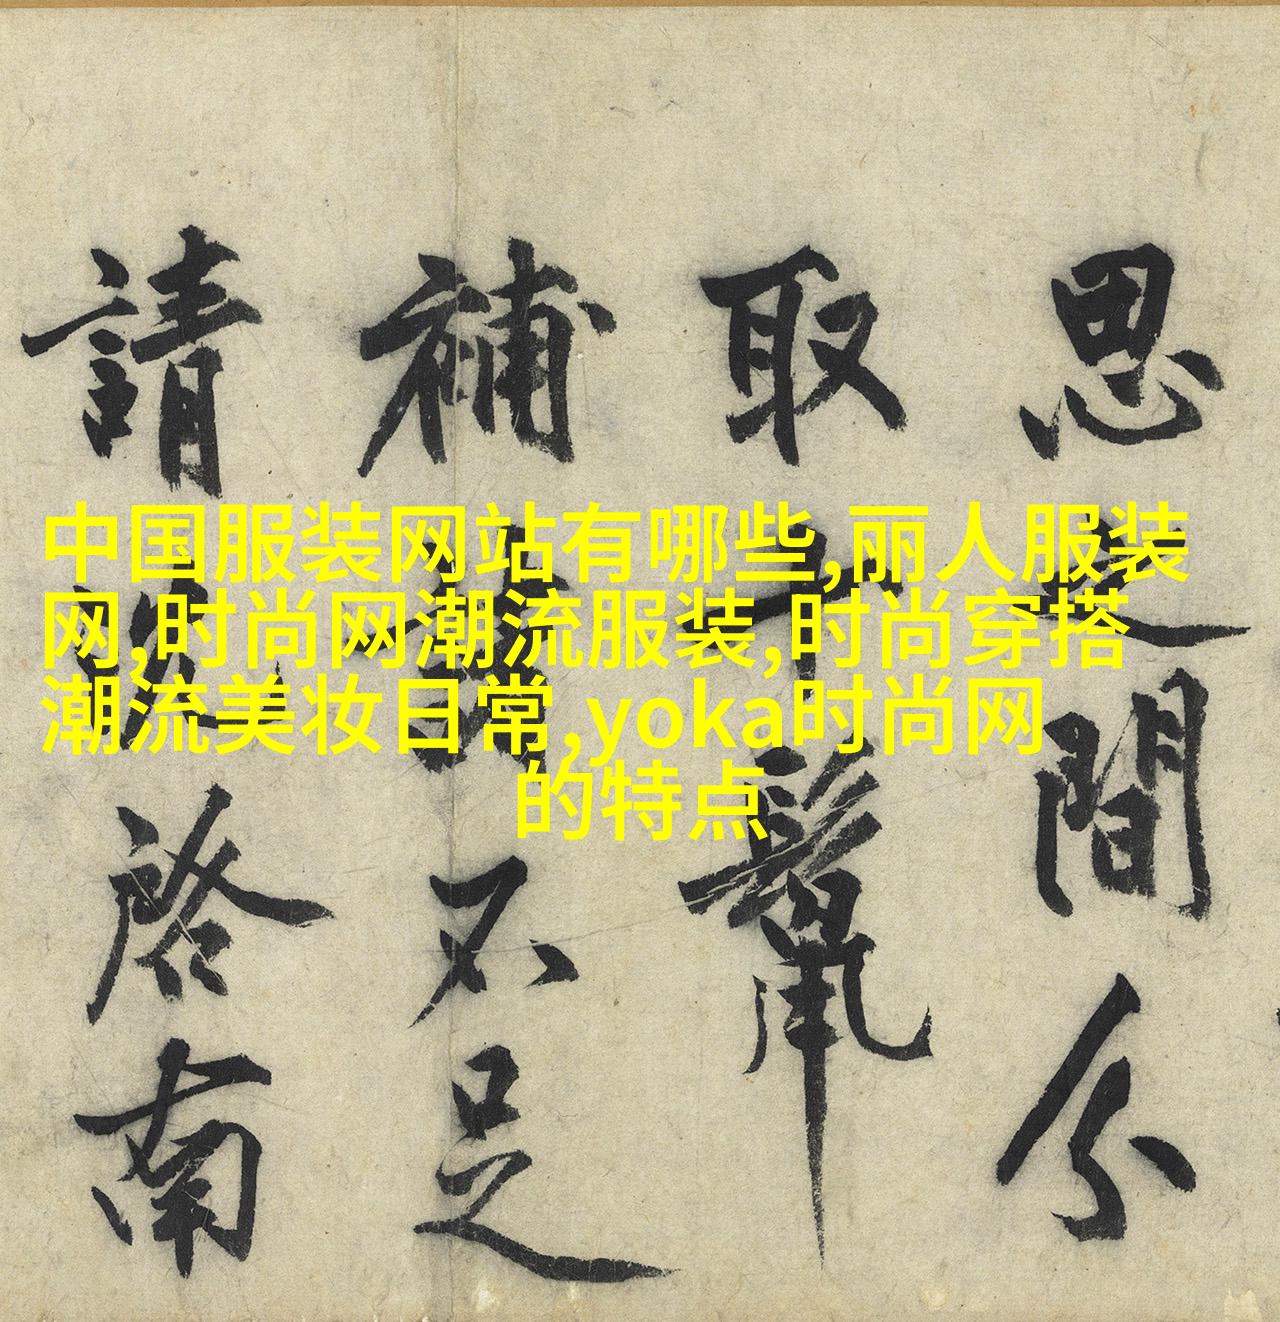 中国服装网站有哪些,丽人服装
网,时尚网潮流服装,时尚穿搭
潮流美妆日常,yoka时尚网
的特点
思之間分
取十鬣
補諸不足
請沈啓南